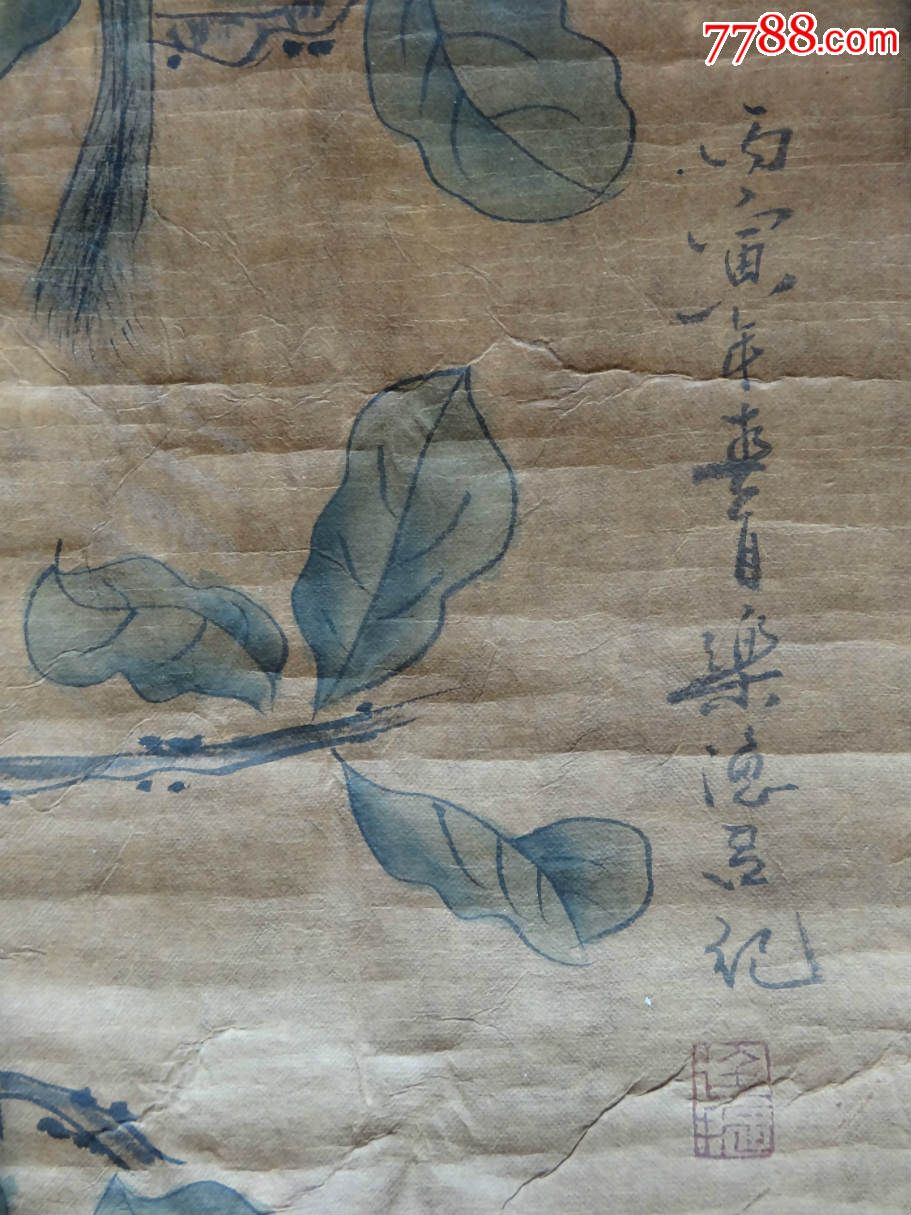 7788.com
丙寅年春月樂漁君记